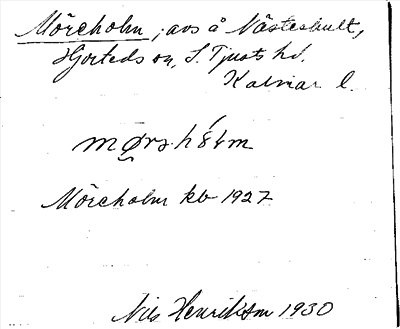 Möreholm, avs å Nästeshult,
Hjorteds sn, S. Tjusts hd.
Kalmar l.
Möreholm kb 1927
Nils Henriksson 1930